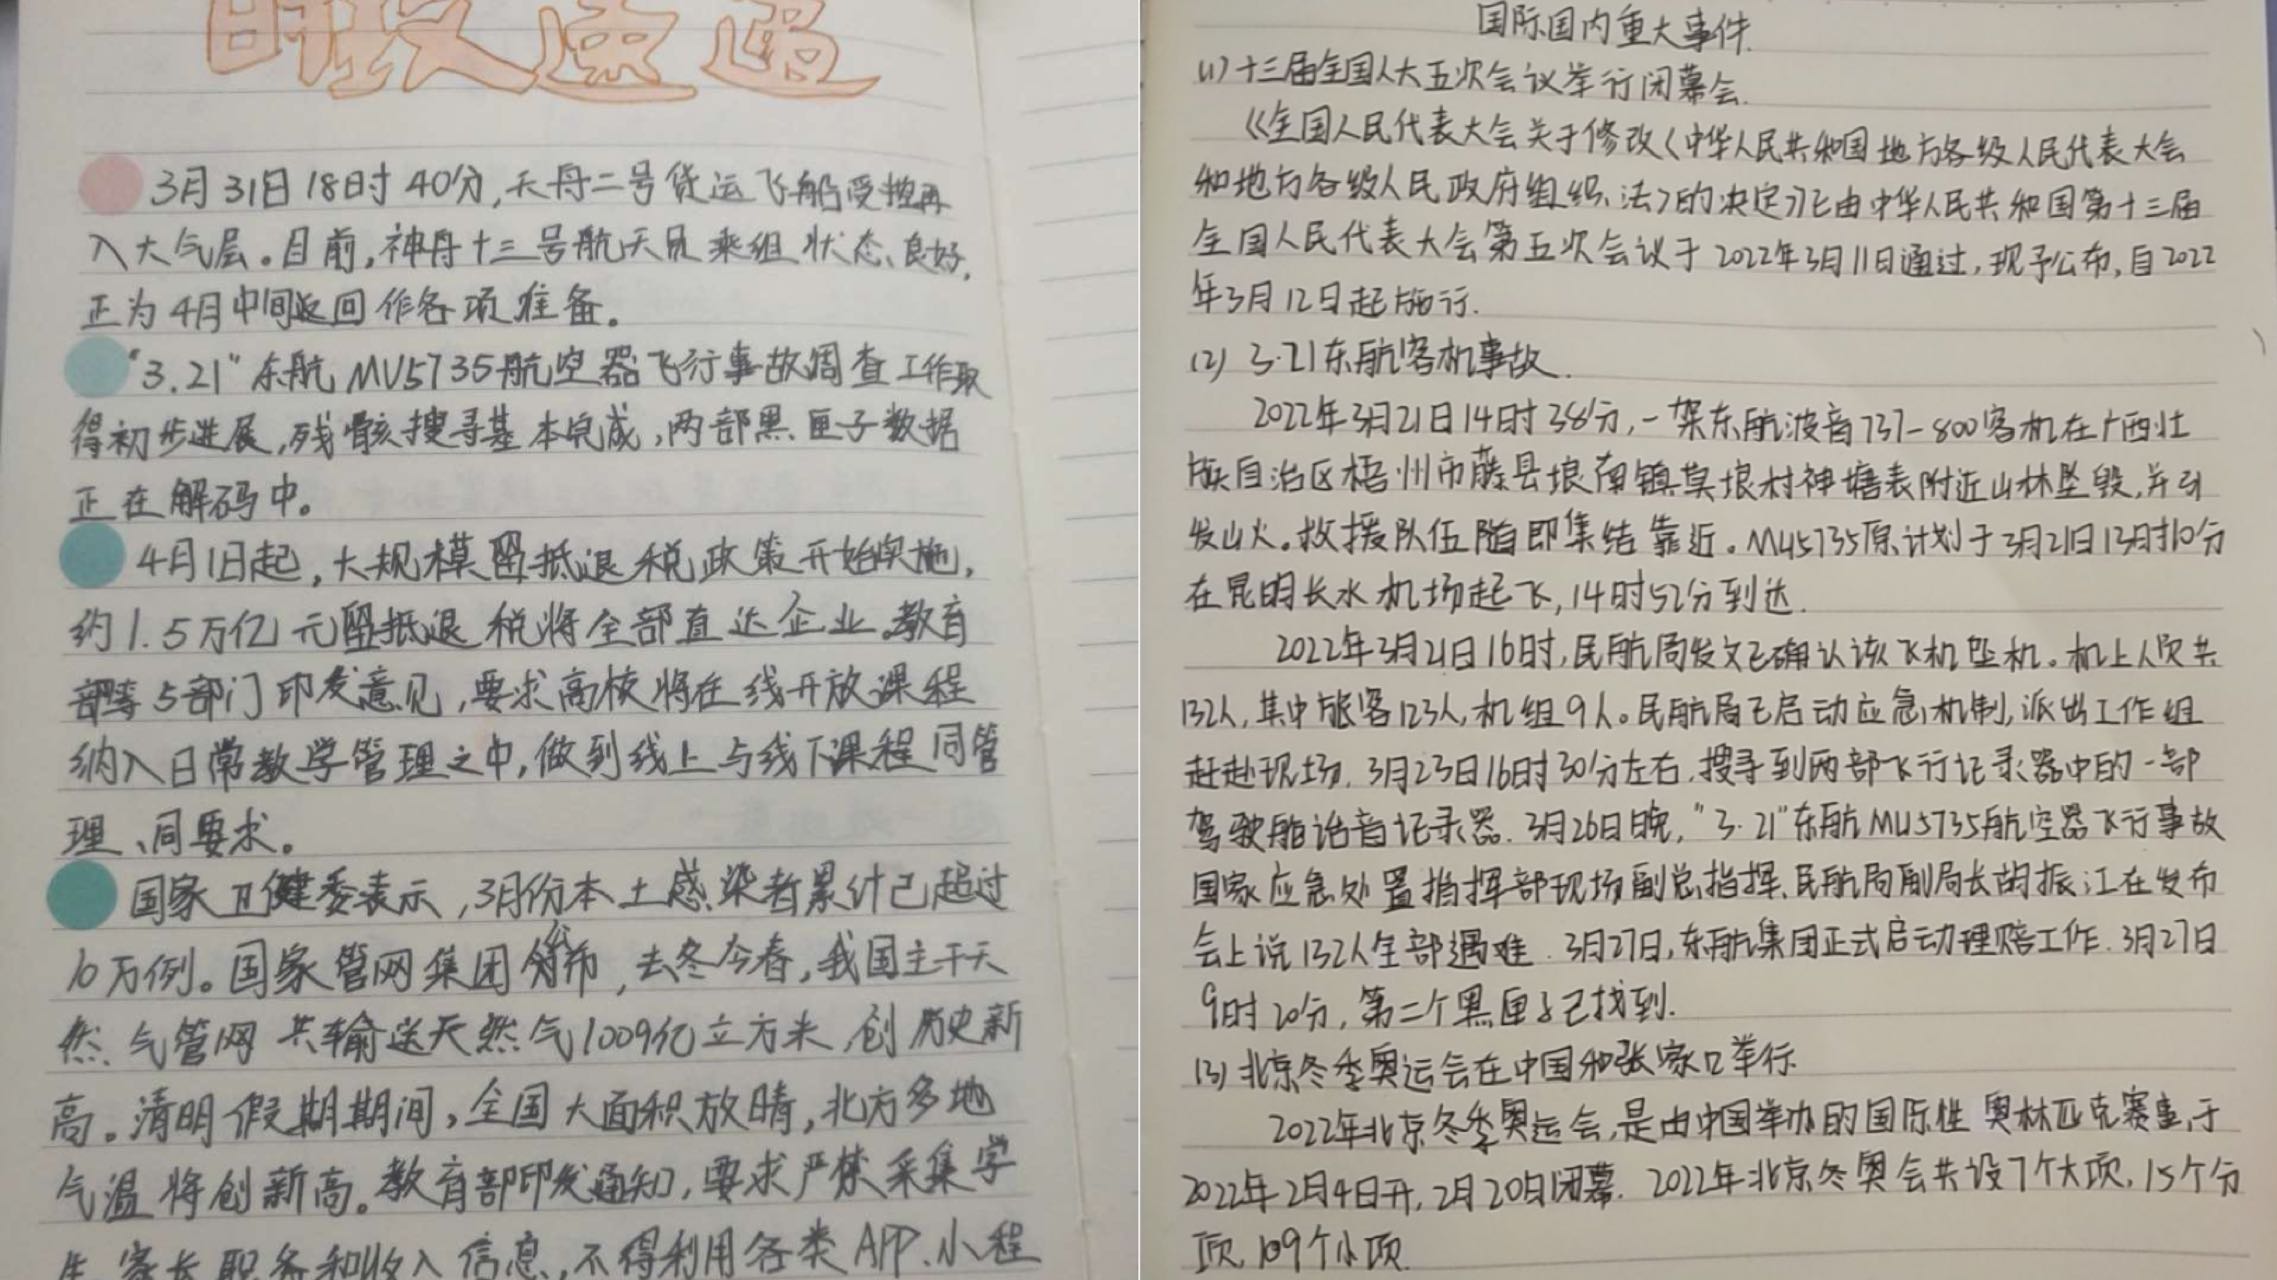 时政速递
3月31日18时40分,天舟二号货运飞船受控再
入大气层。目前,神舟十三号航天员乘组状态良好,
正为4月中间返回作各项准备。
"3.21"东航MU5735航空器飞行事故调查工作取
得初步进展,残骸搜寻基本完成,两部黑匣子数据
正在解码中。
4月1日起,大规模留抵退税政策开始实施,
约1.5万亿元留抵退税将全部直达企业。教育
部等5部门印发意见,要求高校将在线开放课程
纳入日常教学管理之中,做到线上与线下课程同管
理、同要求。
国家卫健委表示,3月份本土感染者累计已超过
10万例。国家管网集团公布,去冬今春,我国主干天
然气管网共输送天然气1009亿立方米,创历史新
高。清明假期期间,全国大面积放晴,北方多地
气温将创新高。教育部印发通知,要求严禁采集学
生、家长职务和收入信息,不得利用各类APP、小程
国际国内重大事件.
(1)十三届全国人大五次会议举行闭幕会.
《全国人民代表大会关于修改〈中华人民共和国地方各级人民代表大会
和地方各级人民政府组织法〉的决定》已由中华人民共和国第十三届
全国人民代表大会第五次会议于2022年3月11日通过,现予公布,自2022
年3月12日起施行.
(2) 3·21东航客机事故.
2022年3月21日14时38分,一架东航波音737-800客机在广西壮
族自治区梧州市藤县埌南镇莫埌村神塘表附近山林坠毁,并引
发山火。救援队伍随即集结靠近。MU5735原计划于3月21日13时10分
在昆明长水机场起飞,14时52分到达.
2022年3月21日16时,民航局发文已确认该飞机坠机。机上人员共
132人,其中旅客123人,机组9人。民航局已启动应急机制,派出工作组
赶赴现场.3月23日16时30分左右,搜寻到两部飞行记录器中的一部
驾驶舱话音记录器.3月26日晚,"3·21"东航MU5735航空器飞行事故
国家应急处置指挥部现场副总指挥、民航局副局长胡振江在发布
会上说132人全部遇难.3月27日,东航集团正式启动理赔工作.3月27日
9时20分,第二个黑匣子已找到.
(3)北京冬季奥运会在中国和张家口举行.
2022年北京冬季奥运会,是由中国举办的国际性奥林匹克赛事,于
2022年2月4日开,2月20日闭幕.2022年北京冬奥会共设7个大项,15个分
项,109个小项.